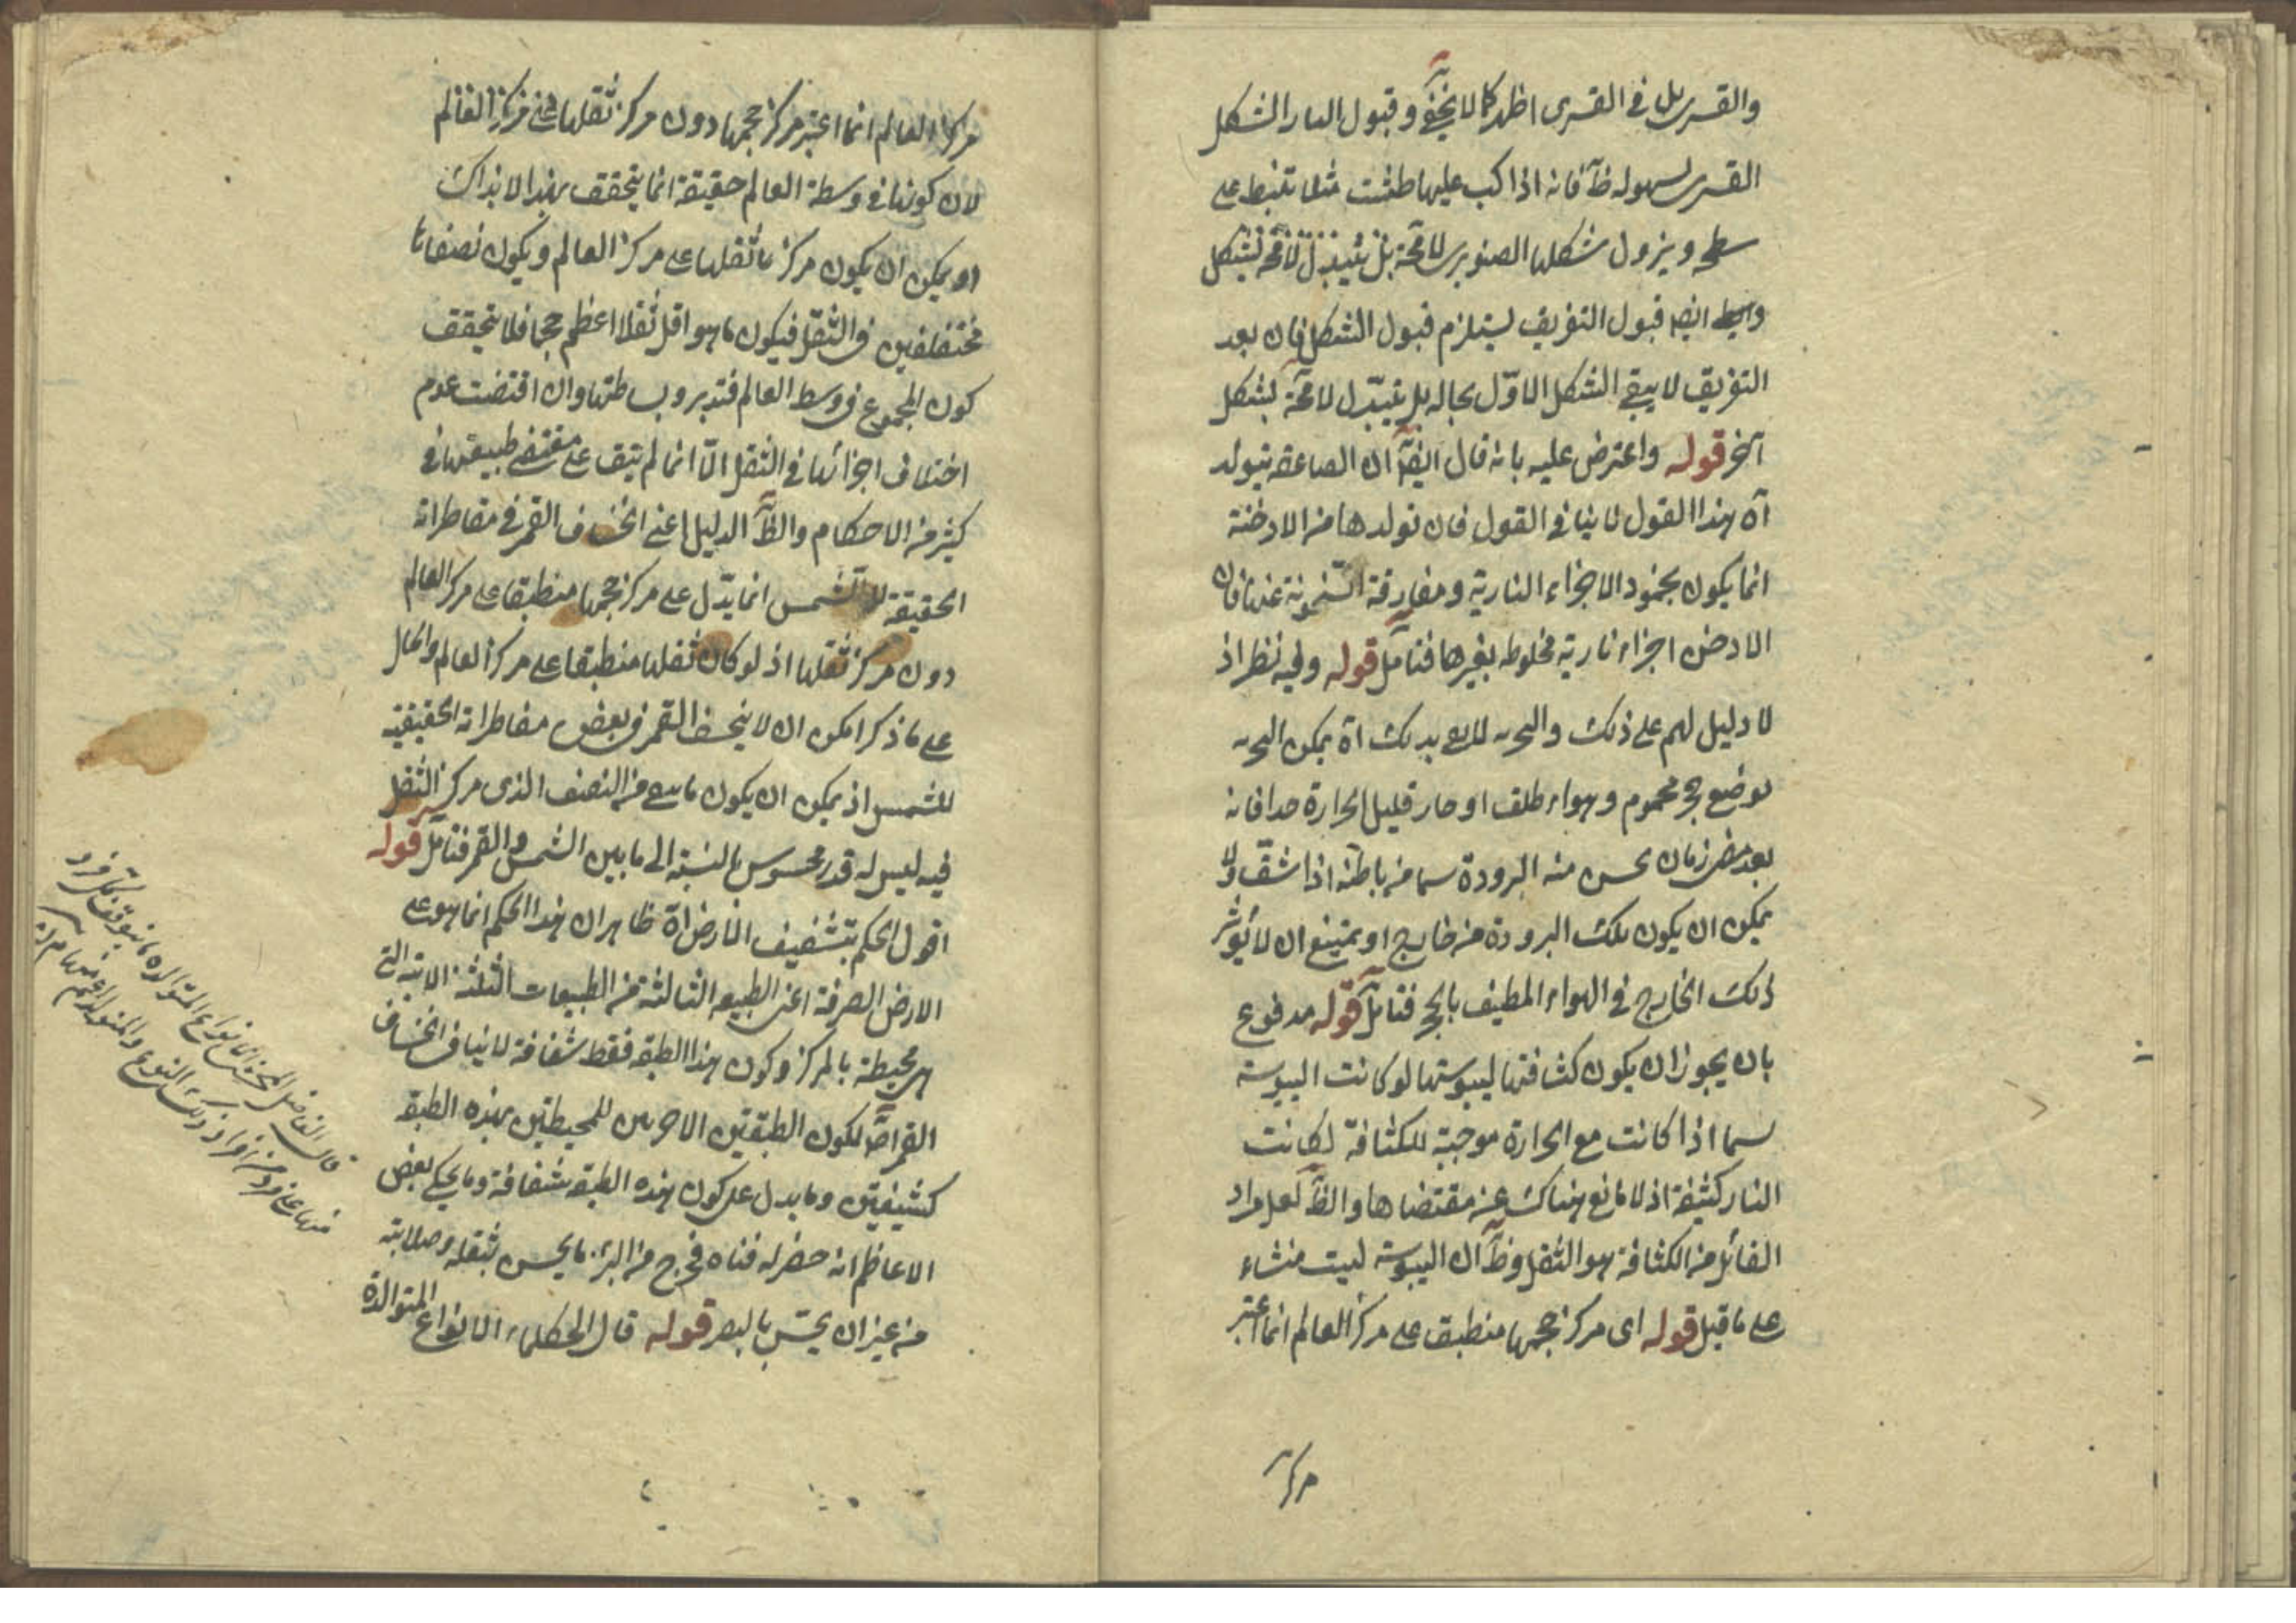 والقسرى بل فى القسرى اظهر كما لا يخفى وقبول النار الشكل
القسرى لسهوله ظ فانه اذا كب عليها طشت مثلا تنبط على
سطحه ويزول شكلها الصنوبرى لا محة بل يتبدل لا محة بشكل
وايضا قبول التفريق يستلزم قبول الشكل فان بعد
التفريق لا يبقى الشكل الاول بحاله بل يتبدل لا محة بشكل
آخر قوله واعترض عليه بانه قال ايضا ان الصاعقه يتولد
آه هذا القول لا ينافى القول فان تولدها من الادخنة
انما يكون بجمود الاجزاء النارية ومفارقة السخونة عنها فان
الادخن اجزاء نارية مخلوطه بغيرها فتامل قوله وفيه نظر اذ
لا دليل لهم على ذلك والتجربه بذلك آه يمكن التجربه
بوضع حجر محموم وهواء طلق او حار قليل الحرارة جدا فانه
بعد مضى زمان يحس منه البرودة سيما من باطنه اذا شق ولا
يمكن ان يكون تلك البرودة من خارج او يمتنع ان لا يؤثر
ذلك الخارج فى الهواء المطيف بالحجر فتامل قوله مدفوع
بان يجوز ان يكون كثافتها ليبوستها لو كانت اليبوسة
سيما اذا كانت مع الحرارة موجبة للكثافة لكانت
النار كثيفة اذ لا مانع هناك عن مقتضاها والظ لعل مراد
القائل من الكثافة هو الثقل وظ ان اليبوسة ليست منشاء
على ما قيل قوله اى مركز حجمها منطبق على مركز العالم انما اعتبر
مركز
مركز العالم انما اعتبر مركز حجمها دون مركز ثقلها على مركز العالم
لان كونها فى وسطة العالم حقيقة انما يتحقق بهذا لا بذاك
اذ يمكن ان يكون مركز ثقلها على مركز العالم ويكون نصفاها
مختلفين فى الثقل فيكون ما هو اقل ثقلا اعظم حجما فلا يتحقق
كون المجموع فى وسط العالم فتدبر وبساطتها وان اقتضت عدم
اختلاف اجزائها فى الثقل الا انها لم تبق على مقتضى طبيعتها فى
كثير من الاحكام والظ الدليل اعنى انخساف القمر فى مقاطراته
الحقيقة للشمس انما يدل على مركز حجمها منطبقا على مركز العالم
دون مركز ثقلها اذ لو كان ثقلها منطبقا على مركز العالم والحال
على ما ذكر امكن ان لا ينخسف القمر فى بعض مقاطراته الحقيقية
للشمس اذ يمكن ان يكون من النصف الذى مركز الثقل
فيه ليس له قدر محسوس بالنسبة الى ما بين الشمس والقمر فتامل قوله
اقول الحكم بتشفيف الارض آه ظاهر ان هذا الحكم انما هو على
الارض الصرفة اعنى الطبيعه الثالثة من الطبيعات الثلثة الاتيه التى
هى محيطة بالمركز وكون هذا الطبقه فقط شفافة لا ينافى انخساف
القمر اصلا لكون الطبقتين الاخريين للمحيطتين بهذه الطبقه
كثيفتين وما يدل على كون هذه الطبقه شفافة وما يحكى بعض
الاعاظم انه حضر له قناه فخرج من البئر ما يحس بثقله وصلابته
من غير ان يحس بالبصر قوله قال الحكماء الانواع المتوالدة
قال الفاضل المحشى انواع المتوالده ما يتوقف كل فرد
منها على فرد من افراد ذلك النوع والمتولد اعم منها